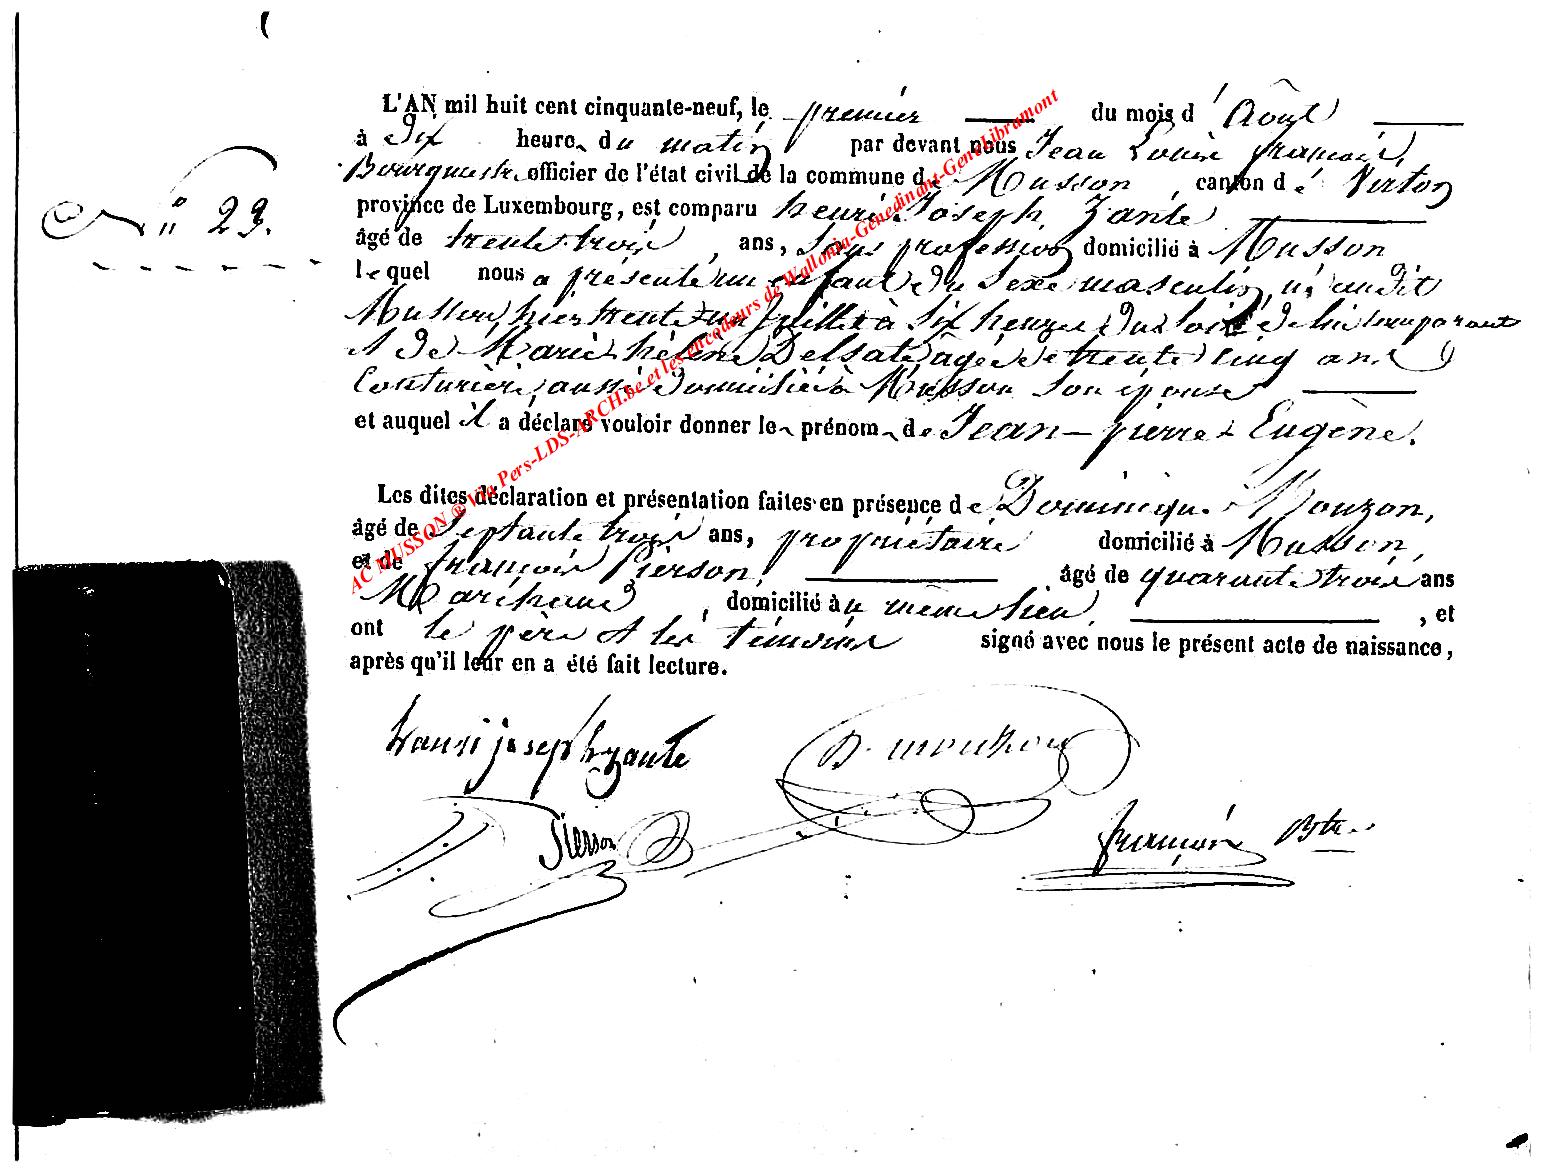 L'AN mil huit cent cinquante-neuf, le premier du mois d' Août
à Dix heure du matin par devant nous Jean Louis françois,
N° 23.
Bourgmestre officier de l'état civil de la commune de Musson, canton de Virton
province de Luxembourg, est comparu henri Joseph Zante
âgé de trente trois, ans, sans profession domicilié à Musson
lequel nous a présenté un enfant du sexe masculin, né audit
Musson hier trente un juillet à six heures du soir de lui comparant
et de Marie hélène Delsate âgée de trente cinq ans
Couturière, aussi domiciliée à Musson son épouse
et auquel il a déclaré vouloir donner le prénom de Jean-pierre Eugène.
Les dites déclaration et présentation faites en présence de Dominique Mouzon,
âgé de septante trois ans, propriétaire domicilié à Musson,
et de françois Pierson, âgé de quarante trois ans
Maréchand, domicilié au même lieu, et
ont le père et les témoins signé avec nous le présent acte de naissance,
après qu'il leur en a été fait lecture.
hanri joseph zante
D. mouzon
Pierson
françois Btre
AC MUSSON ® Via Pers-LDS-ARCH.be et les encodeurs de Wallonia-Genedinant-GeneLibramont